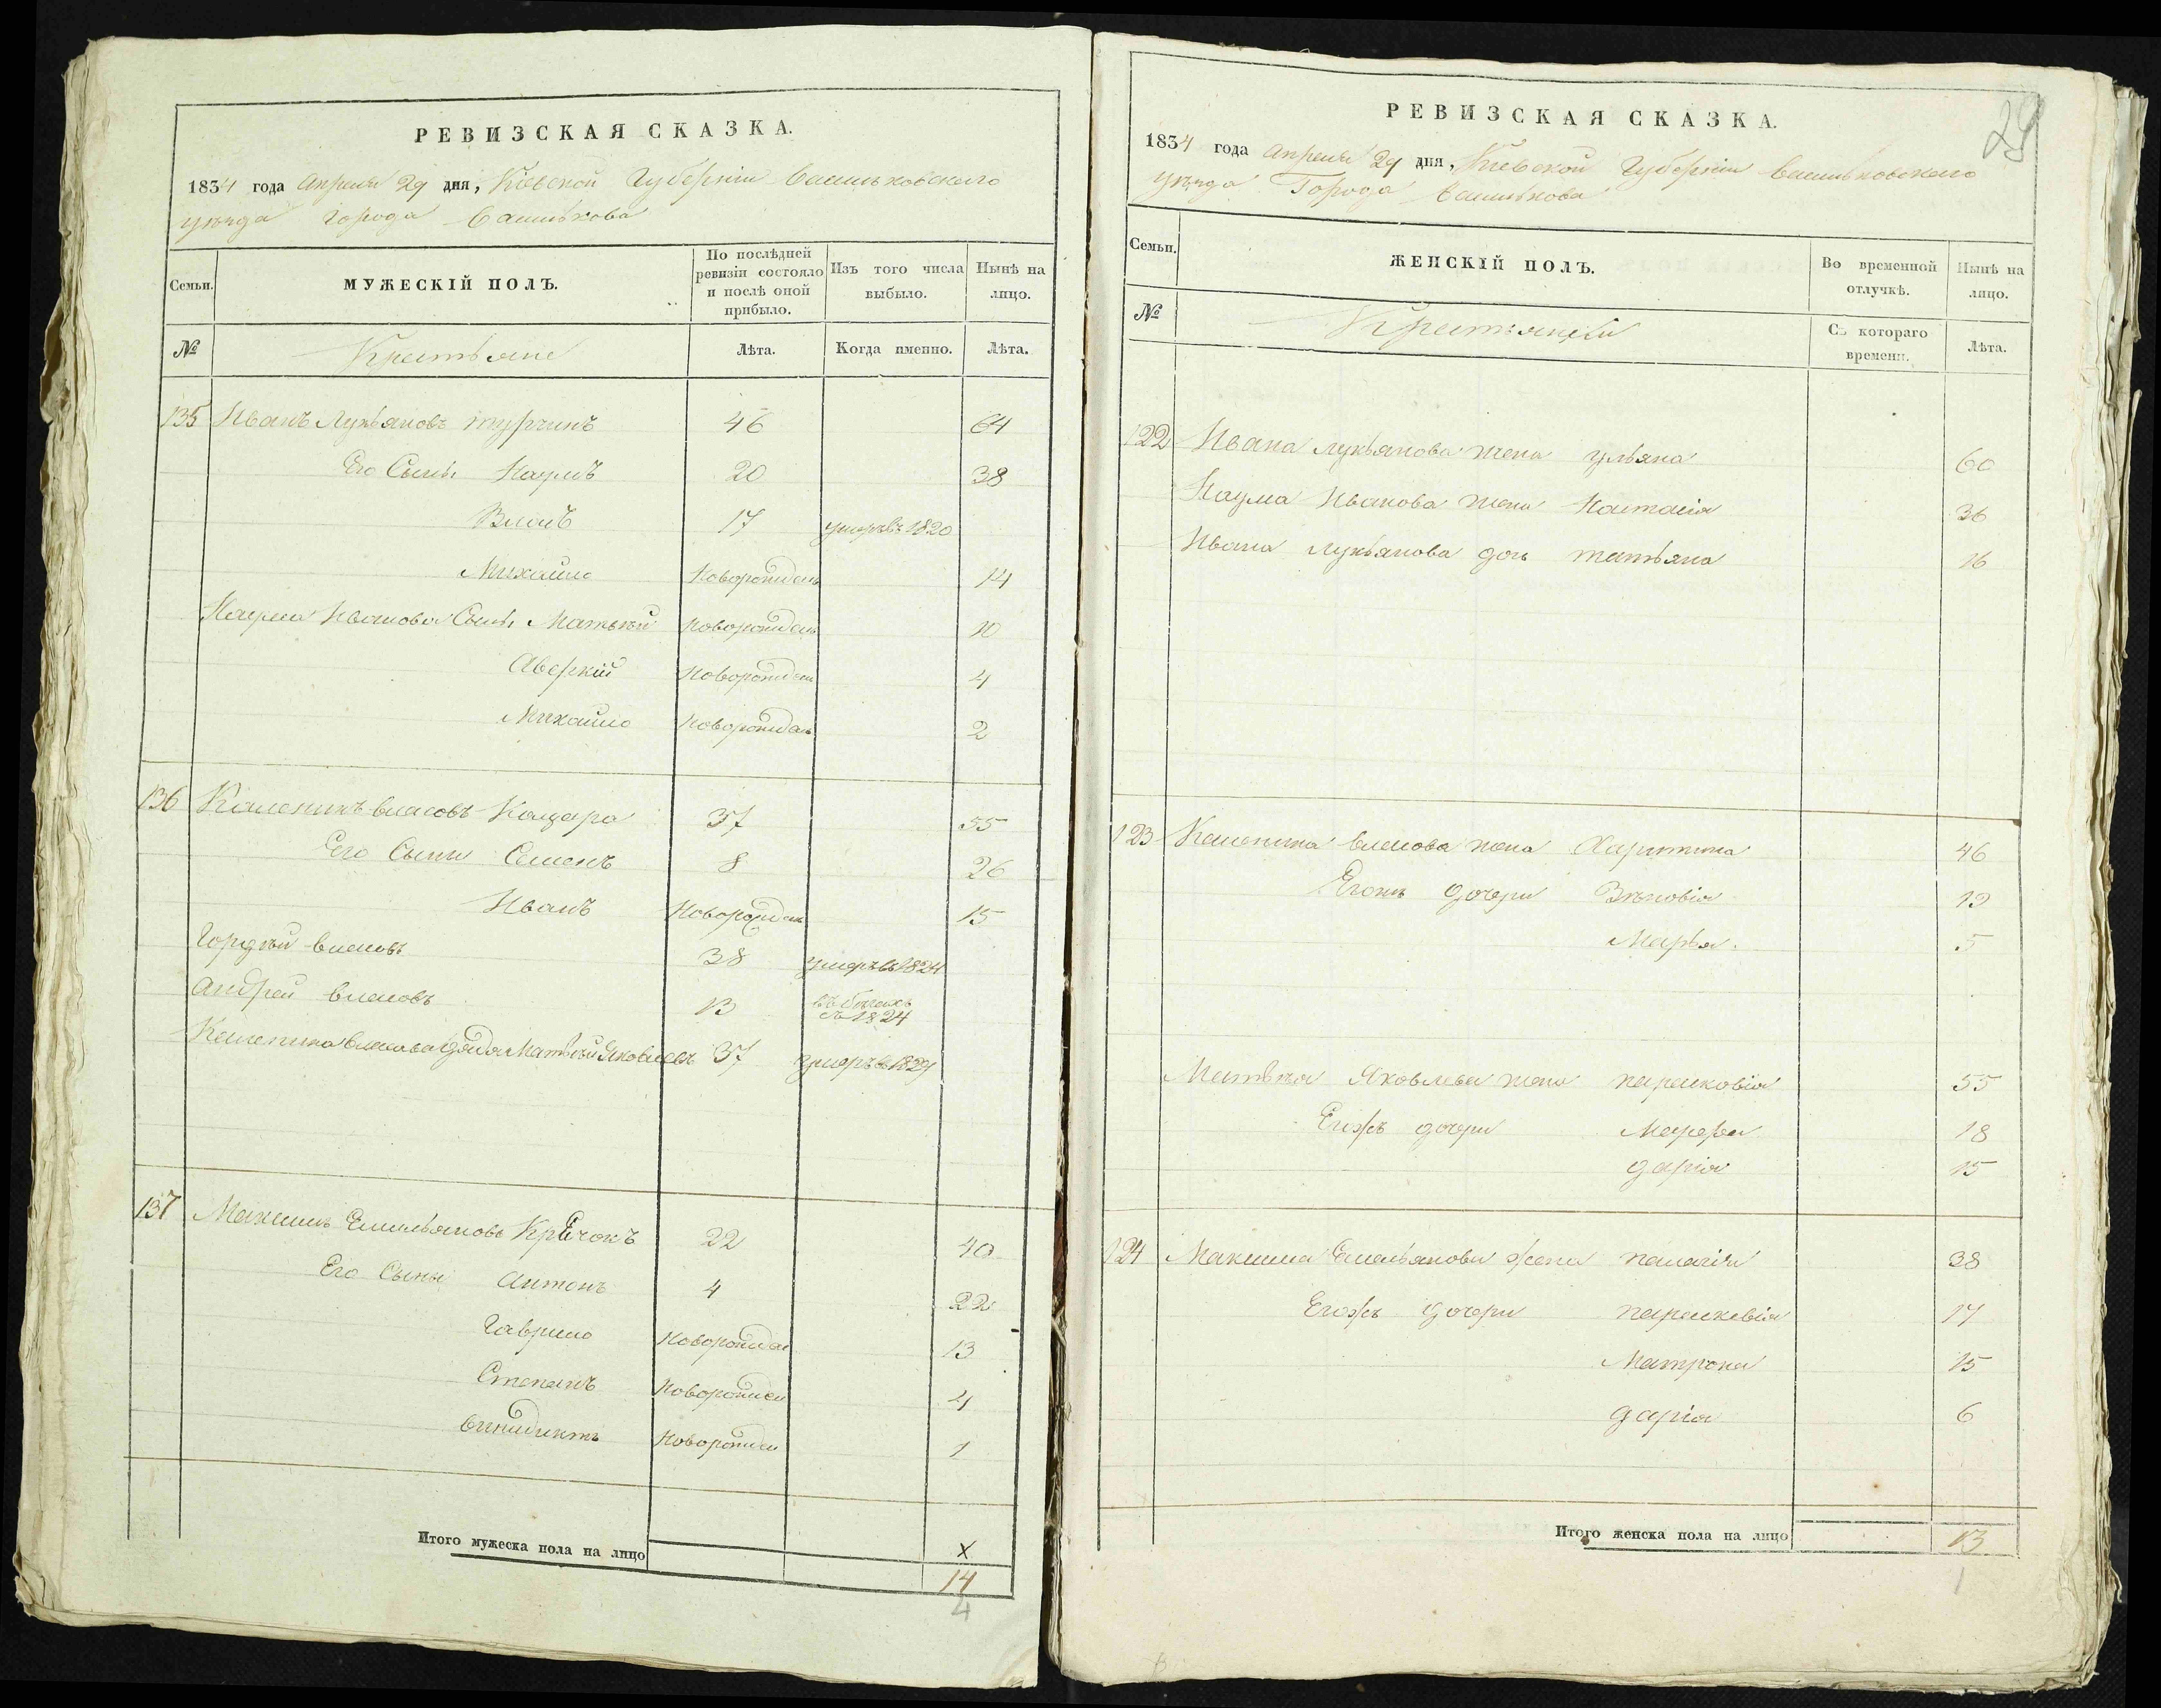 РЕВИЗСКАЯ СКАЗКА.
1834 года Апреля 29 дня, Кіевской Губерніи Васильковского
уезда города Василькова
Семьи.
МУЖЕСКІЙ ПОЛЪ.
По послѣдней ревизіи состояло и послѣ оной прибыло.
Изъ того числа выбыло.
Нынѣ на лицо.
№
Крестьяне
Лѣта.
Когда именно.
Лѣта.
135 Иванъ Лукьяновъ Турчинъ 46 64
Его Сынъ Наумъ 20 38
Власъ 17 умеръ въ 1820
Михайло Новорожденъ 14
Наума Иванова Сынъ Матвѣй новорожденъ 10
Аверкій Новорожден 4
Михайло Новорожден 2
136 Каленикъ власовъ Кацара 37 55
Его Сыни Семенъ 8 26
Иванъ Новорожден 15
Гордѣй власовъ 38 умеръ въ 1824
Андрей власовъ 13 въ бегахъ
съ 1824
Каленика власова дядя Матвѣй Яковлевъ 37 умеръ въ 1829
137 Максимъ Емильяновъ Кръчокъ 22 40
Его Сыны Антонъ 4 22
Гаврило Новорожден 13
Степанъ Новорожден 4
Винидиктъ Новорожден 1
Итого мужеска пола на лицо
х
14
4
29
РЕВИЗСКАЯ СКАЗКА.
1834 года Апреля 29 дня, Кіевской Губерніи Васильковского
уезда Города Василькова
Семьи.
ЖЕНСКІЙ ПОЛЪ.
Во временной отлучкѣ.
Нынѣ на лицо.
№
Съ котораго времени.
Лѣта.
122 Ивана Лукьянова жена ульяна 60
Наума Иванова жена Настасія 36
Ивана Лукьянова дочь татьяна 16
123 Каленика власова жена Харитина 46
Егожъ дочери 19
Марья. 5
Матвѣя Яковлева жена парасковія 55
Егожъ дочери 18
дарія 15
124 Максима Емельянова жена палагія 38
Егожъ дочери параскевія 17
Матрона 15
дарія 6
Итого женска пола на лицо 13
1